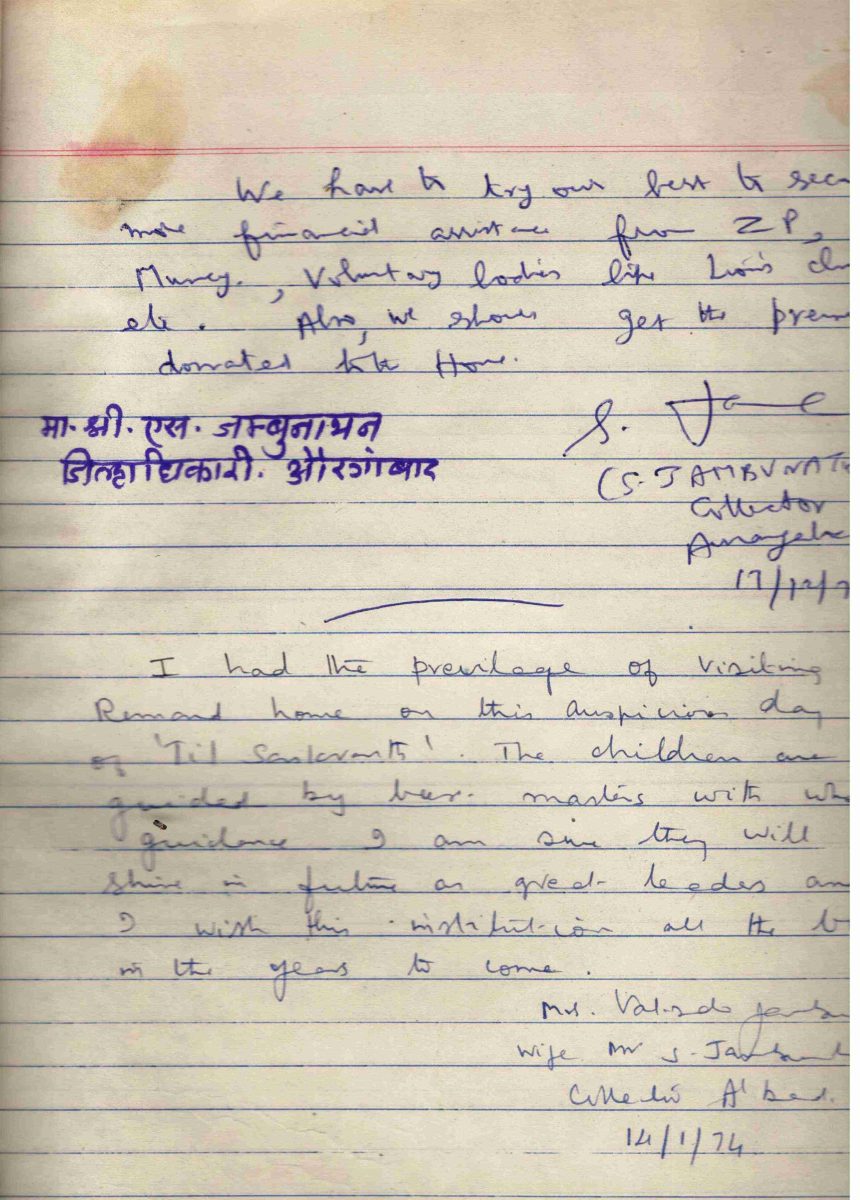 We have to try our best to secu
more financial assistance from ZP,
Muncy., Voluntary bodies like Lion's clu
etc. Also, we should get the prem
donated to the Home.
मा. श्री. एस. जम्बुनाथन
जिल्हाधिकारी. औरगांबाद
S. Jam
(S. JAMBUNATH
Collector
Aurangaba
17/12/7
I had the previlage of visiting
Remand home on this auspicious day
of 'Til Sankranti'. The children are
guided by masters with wh
guidance I am sure they will
shine in future as great leaders an
I wish this institution all the b
in the years to come.
Mrs.
Wife Mr S. Jambunath
Collector A'bad.
14/1/74